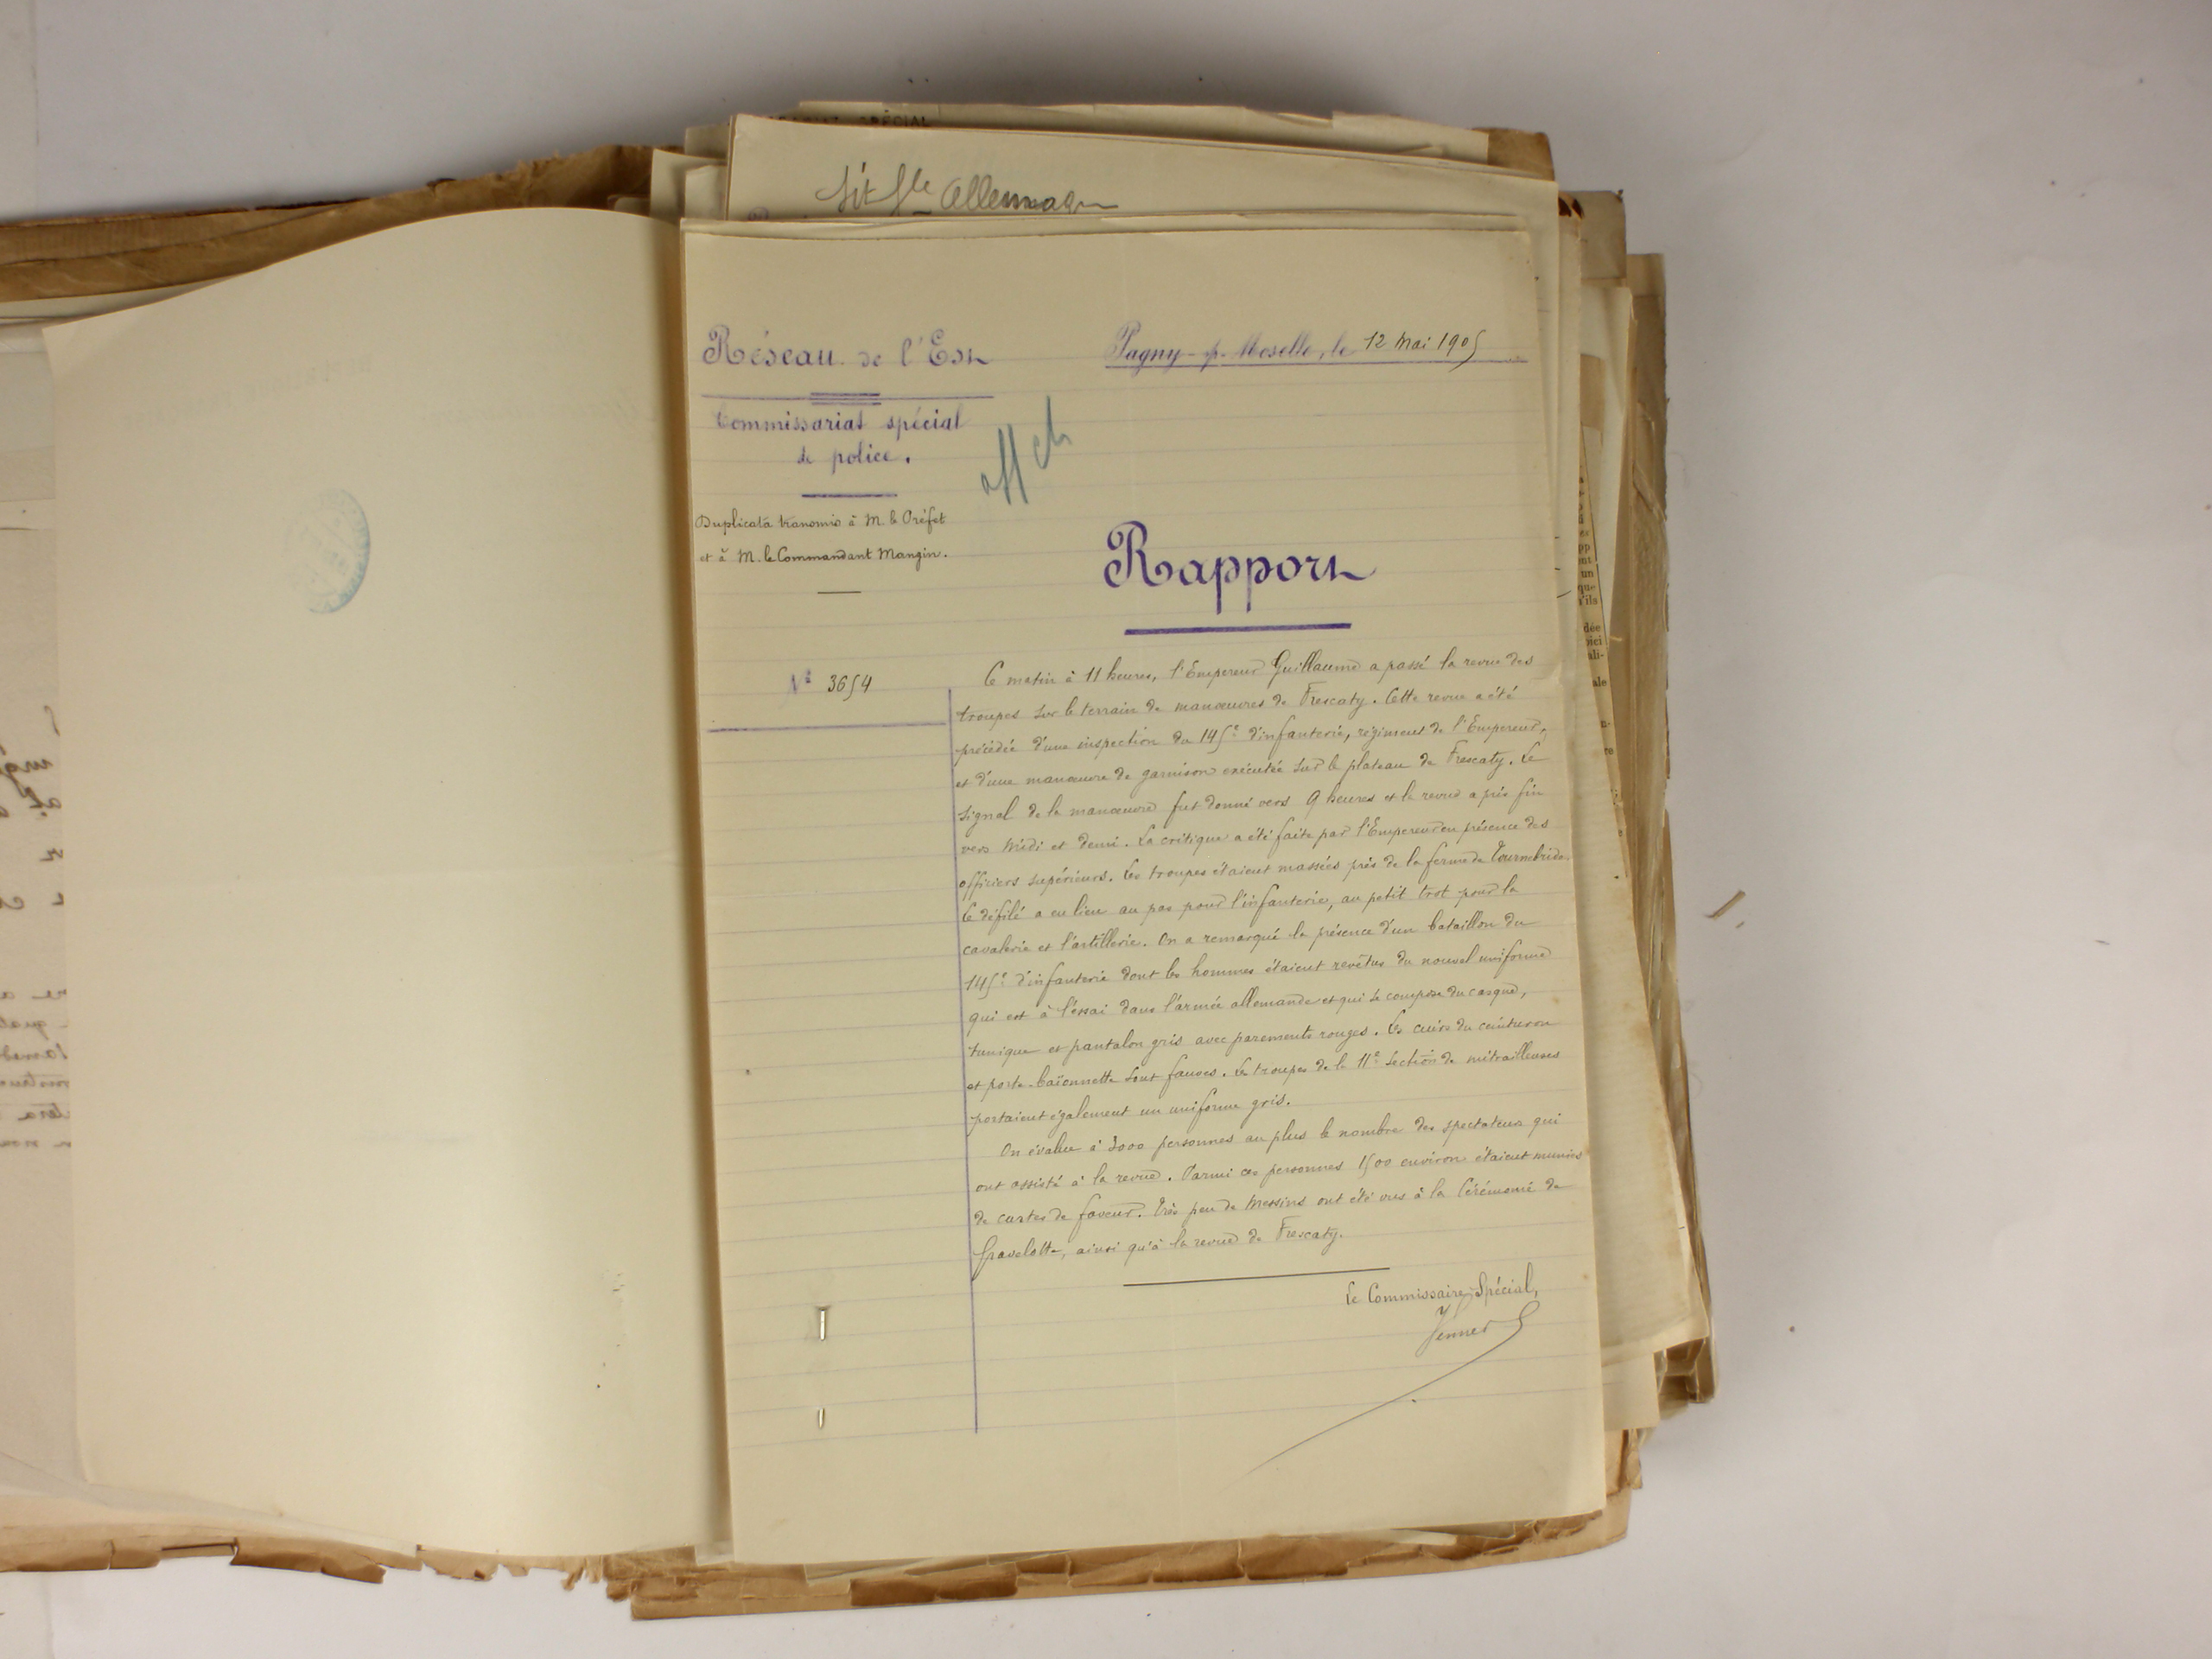 SPÉCIAL
Sit Gle Allemagne
Réseau de l'Est
Pagny-s-Moselle, le 12 Mai 1905
Commissariat spécial
de police.
Duplicata transmis à M. le Préfet
et à M. le Commandant Mangin.
Rapport
N° 3654
Ce matin à 11 heures, l'Empereur Guillaume a passé la revue des
troupes sur le terrain de manœuvres de Frescaty. Cette revue a été
précédée d'une inspection du 145e d'infanterie, régiment de l'Empereur,
et d'une manœuvre de garnison exécutée sur le plateau de Frescaty. Le
signal de la manœuvre fut donné vers 9 heures et la revue a pris fin
vers midi et demi. La critique a été faite par l'Empereur en présence des
officiers supérieurs. Les troupes étaient massées près de la ferme de Tournebride.
Le défilé a eu lieu au pas pour l'infanterie, au petit trot pour la
cavalerie et l'artillerie. On a remarqué la présence d'un bataillon du
145e d'infanterie dont les hommes étaient revêtus du nouvel uniforme
qui est à l'essai dans l'armée allemande et qui se compose du casque,
tunique et pantalon gris avec parements rouges. Les cuirs du ceinturon
et porte-baïonnette sont fauves. Les troupes de la 11e section de mitrailleuses
portaient également un uniforme gris.
On évalue à 3000 personnes au plus le nombre des spectateurs qui
ont assisté à la revue. Parmi ces personnes 1500 environ étaient munies
de cartes de faveur. Très peu de Messins ont été vus à la Cérémonie de
Gravelotte, ainsi qu'à la revue de Frescaty.
Le Commissaire Spécial,